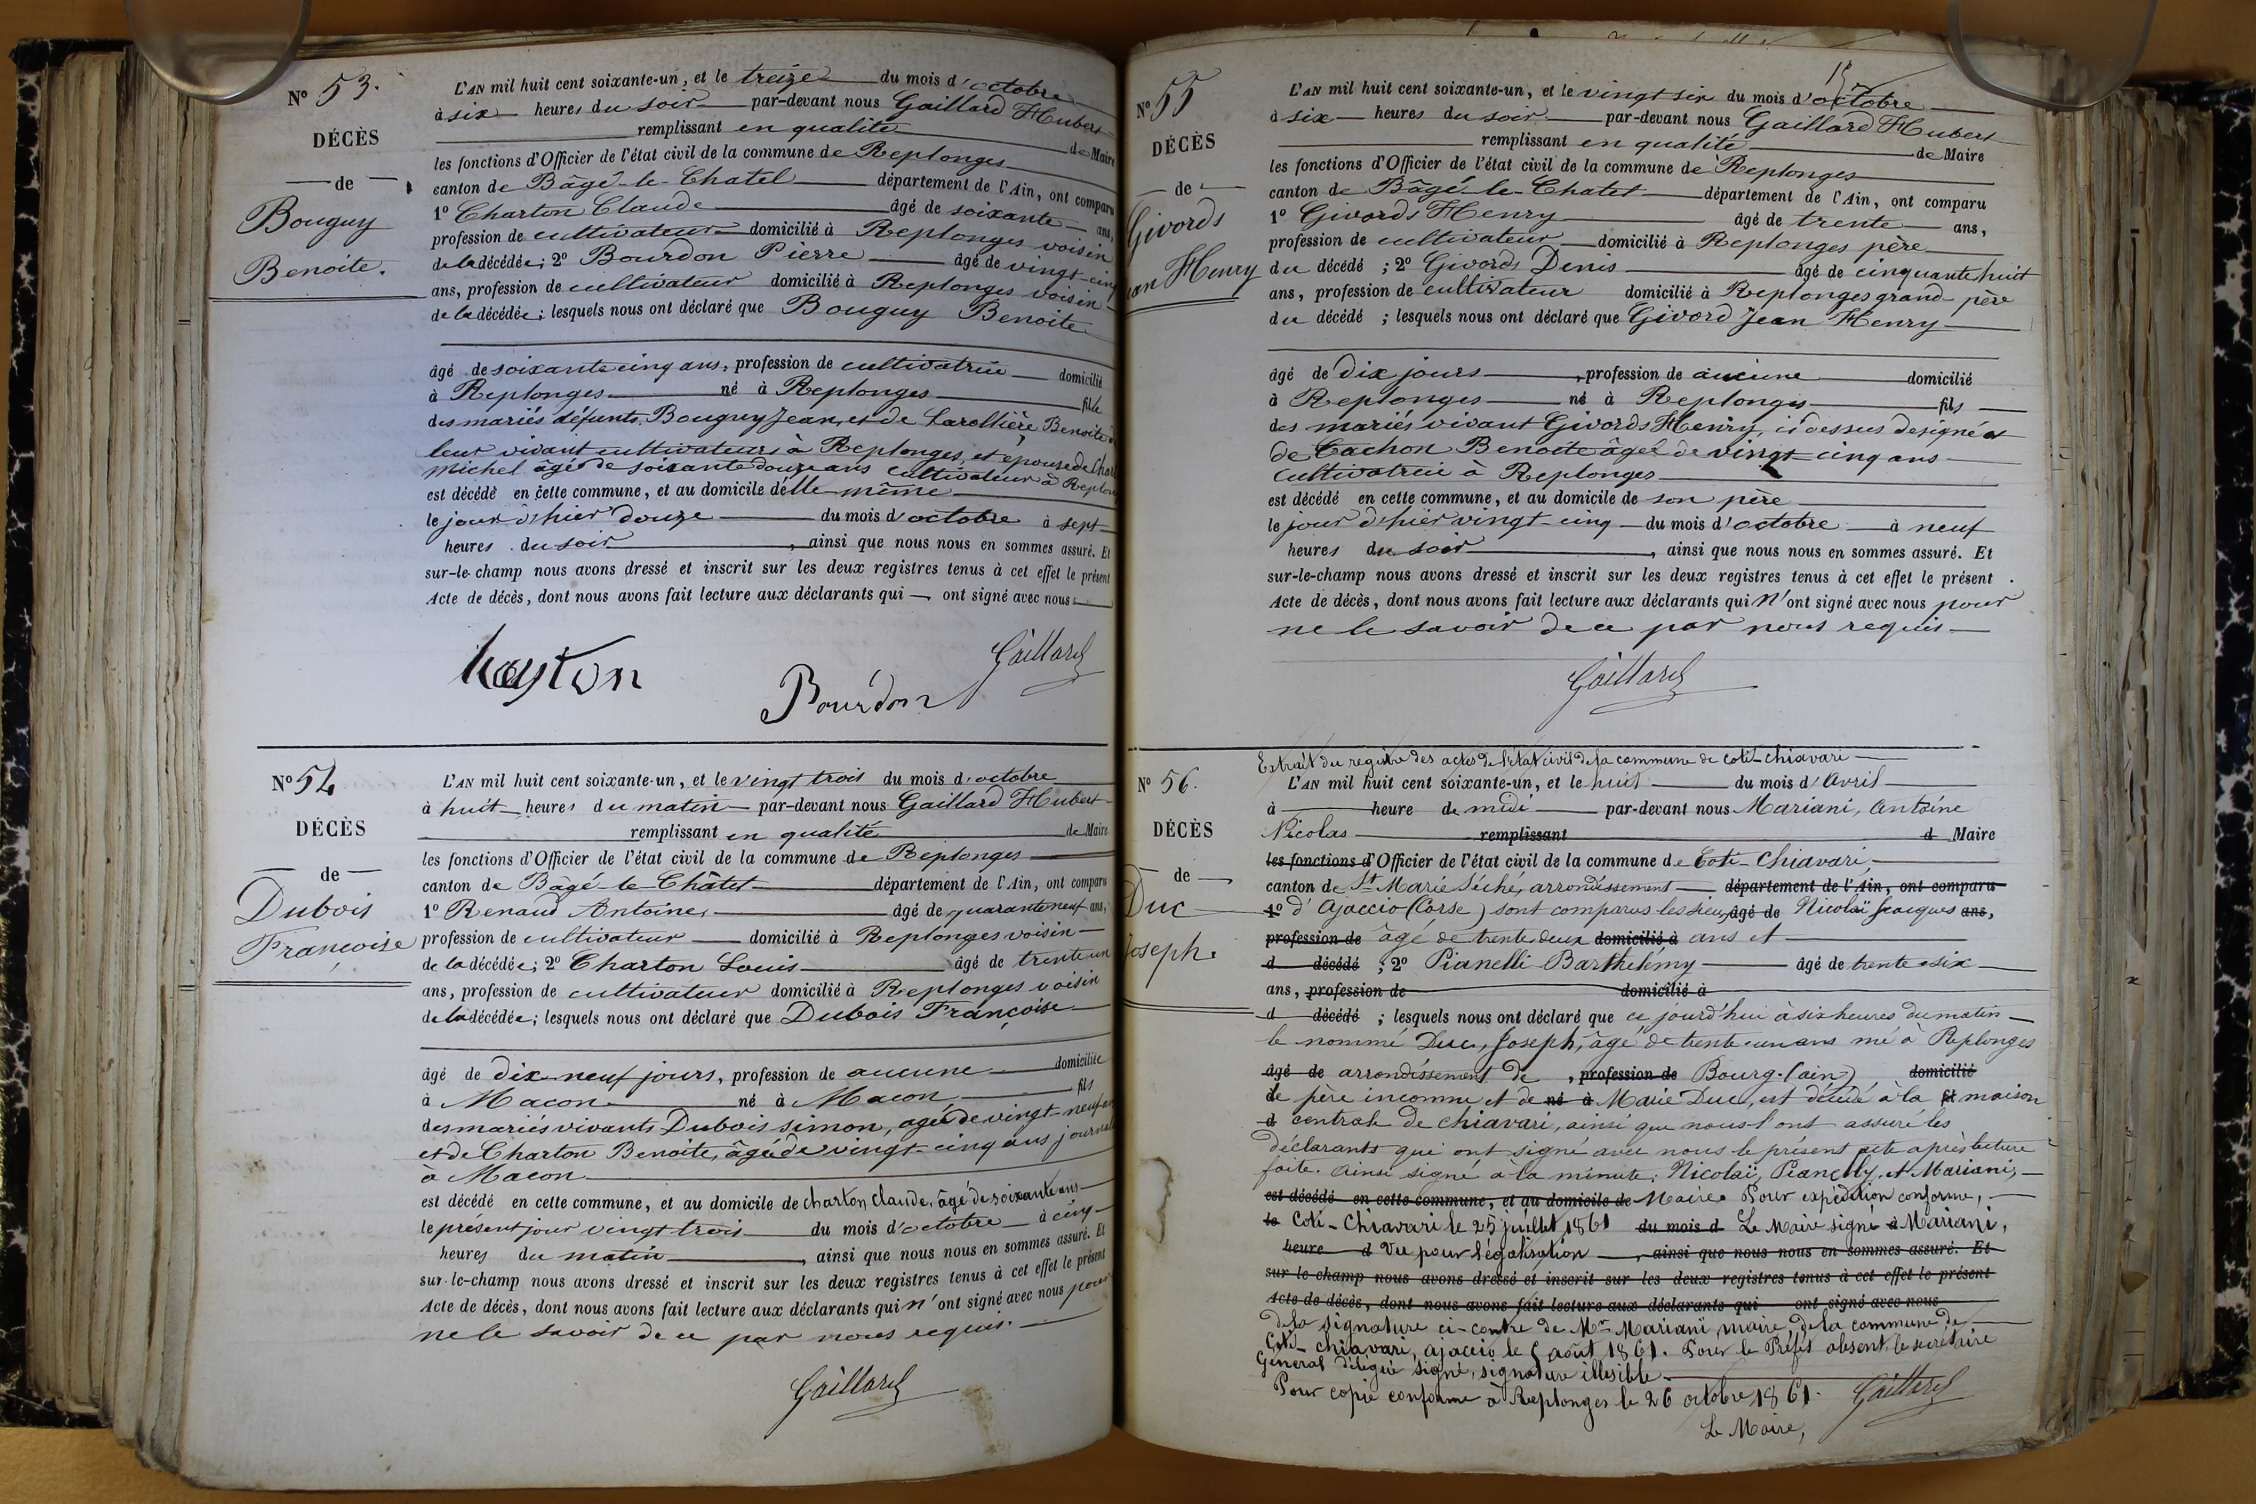 N° 53.
DÉCÈS
de
Bouguy
Benoite.
L'AN mil huit cent soixante-un, et le treize du mois d'octobre
à six heures du soir par-devant nous Gaillard Hubert
remplissant en qualité de Maire
les fonctions d'Officier de l'état civil de la commune de Replonges
canton de Bâgé-le-Chatel département de l'Ain, ont comparu
1° Charton Claude âgé de soixante ans,
profession de cultivateur domicilié à Replonges voisin
de la décédée; 2° Bourdon Pierre âgé de vingt-cinq
ans, profession de cultivateur domicilié à Replonges voisin
de la décédée; lesquels nous ont déclaré que Bouguy Benoite
âgé de soixante cinq ans, profession de cultivatrice domicilié
à Replonges né à Replonges fille
des mariés défunts Bouguey Jean, et de Larollière Benoite
leur vivant cultivateurs à Replonges, et épouse de
Michel âgé de soixante douze ans cultivateur à
est décédé en cette commune, et au domicile d'elle même
le jour d'hier douze du mois d'octobre à sept
heures du soir, ainsi que nous nous en sommes assuré. Et
sur-le-champ nous avons dressé et inscrit sur les deux registres tenus à cet effet le présent
Acte de décès, dont nous avons fait lecture aux déclarants qui ont signé avec nous.
Bourdon Gaillard
N° 54
DÉCÈS
de
Dubois
Françoise
L'AN mil huit cent soixante-un, et le vingt trois du mois d'octobre
à huit heures du matin par-devant nous Gaillard Hubert
remplissant en qualité de Maire
les fonctions d'Officier de l'état civil de la commune de Replonges
canton de Bâgé-le-Châtel département de l'Ain, ont comparu
1° Renaud Antoine, âgé de quarante neuf ans,
profession de cultivateur domicilié à Replonges voisin
de la décédée; 2° Charton Louis âgé de trente un
ans, profession de cultivateur domicilié à Replonges voisin
de la décédée; lesquels nous ont déclaré que Dubois Françoise
âgé de dix neuf jours, profession de aucune domiciliée
à Macon né à Macon fils
des mariés vivants Dubois simon, agé de vingt-neuf
et de Charton Benoite, âgée de vingt-cinq ans
à Macon
est décédé en cette commune, et au domicile de charton claude, âgé de soixante ans
le présent jour vingt trois du mois d'octobre à cinq
heures du matin, ainsi que nous nous en sommes assuré. Et
sur-le-champ nous avons dressé et inscrit sur les deux registres tenus à cet effet le présent
Acte de décès, dont nous avons fait lecture aux déclarants qui n'ont signé avec nous pour
ne le savoir de ce par nous requis.
Gaillard
N° 55
DÉCÈS
de
Givords
Henry
L'AN mil huit cent soixante-un, et le vingt six du mois d'octobre
à six heures du soir par-devant nous Gaillard Hubert
remplissant en qualité de Maire
les fonctions d'Officier de l'état civil de la commune de Replonges
canton de Bâgé-le-Chatel département de l'Ain, ont comparu
1° Givords Henry âgé de trente ans,
profession de cultivateur domicilié à Replonges père
du décédé; 2° Givords Denis âgé de cinquante huit
ans, profession de cultivateur domicilié à Replonges grand-père
du décédé; lesquels nous ont déclaré que Givord Jean Henry
âgé de dix jours, profession de aucune domicilié
à Replonges né à Replonges fils
des mariés vivant Givords Henry, ci dessus designé et
de Cachon Benoite âgée de vingt-cinq ans
Cultivatrice à Replonges
est décédé en cette commune, et au domicile de son père
le jour d'hier vingt-cinq du mois d'octobre à neuf
heures du soir, ainsi que nous nous en sommes assuré. Et
sur-le-champ nous avons dressé et inscrit sur les deux registres tenus à cet effet le présent
Acte de décès, dont nous avons fait lecture aux déclarants qui n'ont signé avec nous pour
ne le savoir de ce par nous requis
Gaillard
N° 56.
DÉCÈS
de
Duc
Joseph.
Extrait du registre des actes de l'état civil de la commune de coti-chiavari
L'AN mil huit cent soixante-un, et le huit du mois d'Avril
à heure de midi par-devant nous Mariani, Antoine
Nicolas remplissant d Maire
les fonctions d'Officier de l'état civil de la commune de Coti-Chiavari,
canton de Ste Marie Séché, arrondissement département de l'Ain, ont comparu
1° d'Ajaccio (Corse) sont comparus les sieurs âgé de Nicolaï Jacques ans,
profession de âgé de trente deux domicilié à ans et
d décédé; 2° Pianelli Barthélémy âgé de trente-six
ans, profession de domicilié à
d décédé; lesquels nous ont déclaré que ce jourd'hui à six heures du matin
le nommé Duc, Joseph, âgé de trente un ans né à Replonges
âgé de arrondissement de, profession de Bourg (ain), domicilié
de père inconnu et de né à Marie Duc, est décédé à la maison
d centrale de chiavari, ainsi que nous l'ont assuré les
déclarants qui ont signé avec nous le présent acte après lecture
faite. Ainsi signé à la minute: Nicolaï, Pianelly, et Mariani,
est décédé en cette commune, et au domicile de Maire. Pour expédition conforme,
le Coti-Chiavari le 25 juillet 1861 du mois d Le Maire signé à Mariani,
heure d Vu pour légalisation, ainsi que nous nous en sommes assuré. Et
sur-le-champ nous avons dressé et inscrit sur les deux registres tenus à cet effet le présent
Acte de décès, dont nous avons fait lecture aux déclarants qui ont signé avec nous
de la signature ci-contre de Mr Mariani, maire de la commune de
Coti-chiavari, ajaccio le août 1861. Pour le Préfet absent le secrétaire
Général délégué signé, signature illisible
Pour copie conforme à Replonges le 26 octobre 1861. Gaillard
Le Maire,